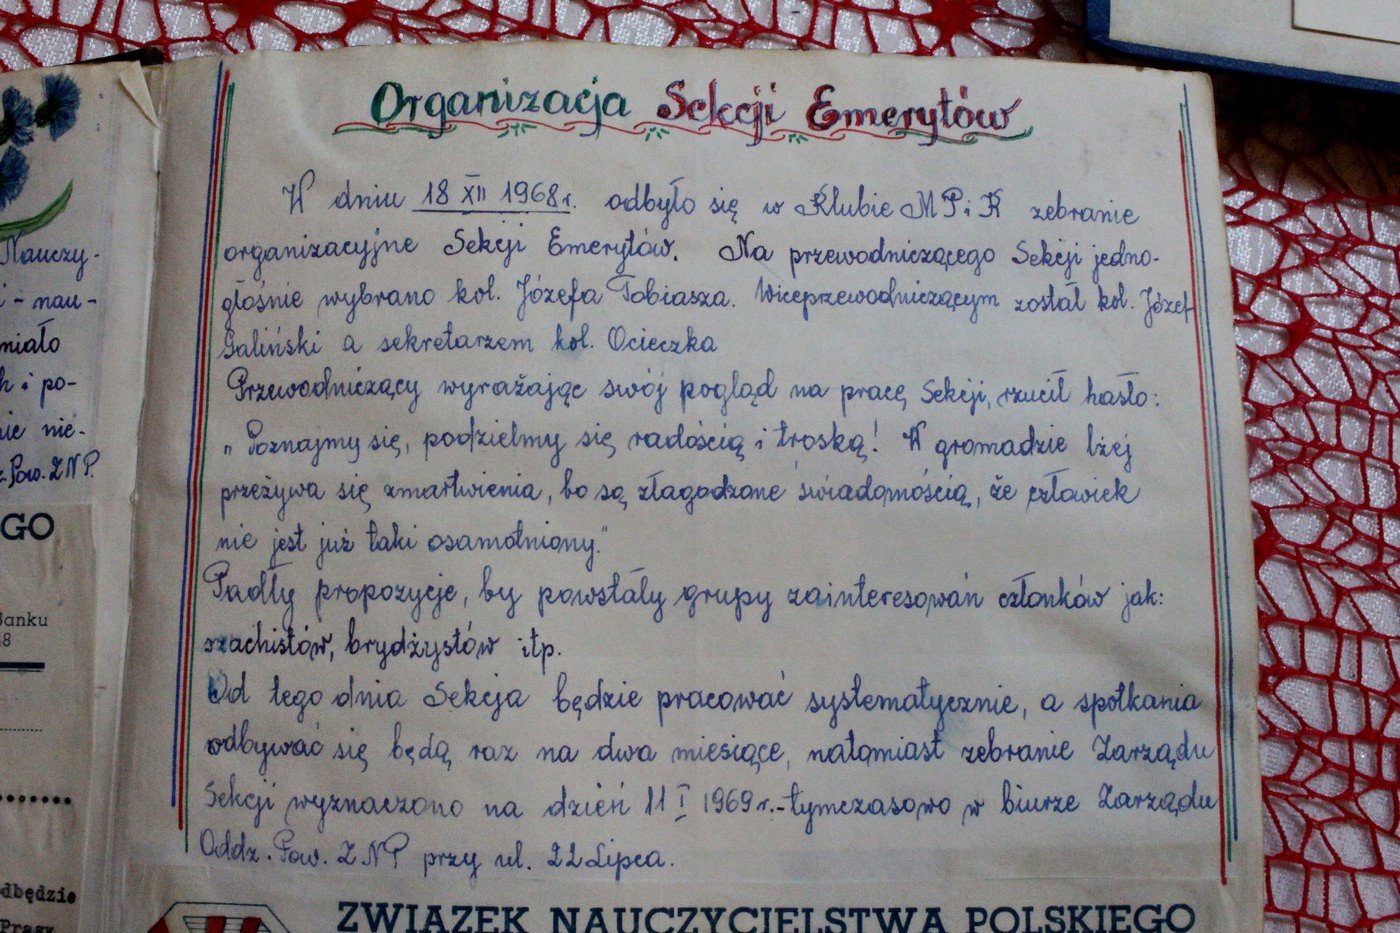 Organizacja Sekcji Emerytów
W dniu 18 XII 1968 r. odbyło się w Klubie MPiK zebranie
organizacyjne Sekcji Emerytów. Na przewodniczącego Sekcji jedno-
głośnie wybrano kol. Józefa Tobiasza. Wiceprzewodniczącym został kol. Józef
Galiński a sekretarzem kol. Ocieczka
Przewodniczący wyrażając swój pogląd na pracę Sekcji, rzucił hasło:
„Poznajmy się, podzielmy się radością i troską! W gromadzie lżej
przeżywa się zmartwienia, bo są złagodzone świadomością, że człowiek
nie jest już taki osamotniony."
Padły propozycje, by powstały grupy zainteresowań członków jak:
szachistów, brydżystów itp.
Od tego dnia Sekcja będzie pracować systematycznie, a spotkania
odbywać się będą raz na dwa miesiące, natomiast zebranie Zarządu
Sekcji wyznaczono na dzień 11 I 1969 r. - tymczasowo w biurze Zarządu
Oddz. Pow. ZNP przy ul. 22 Lipca.
ZWIĄZEK NAUCZYCIELSTWA POLSKIEGO
Nauczy-
i - nau-
miało
h i po-
nie nie-
z. Pow. ZNP.
GO
Banku
8
dbędzie
Prasy